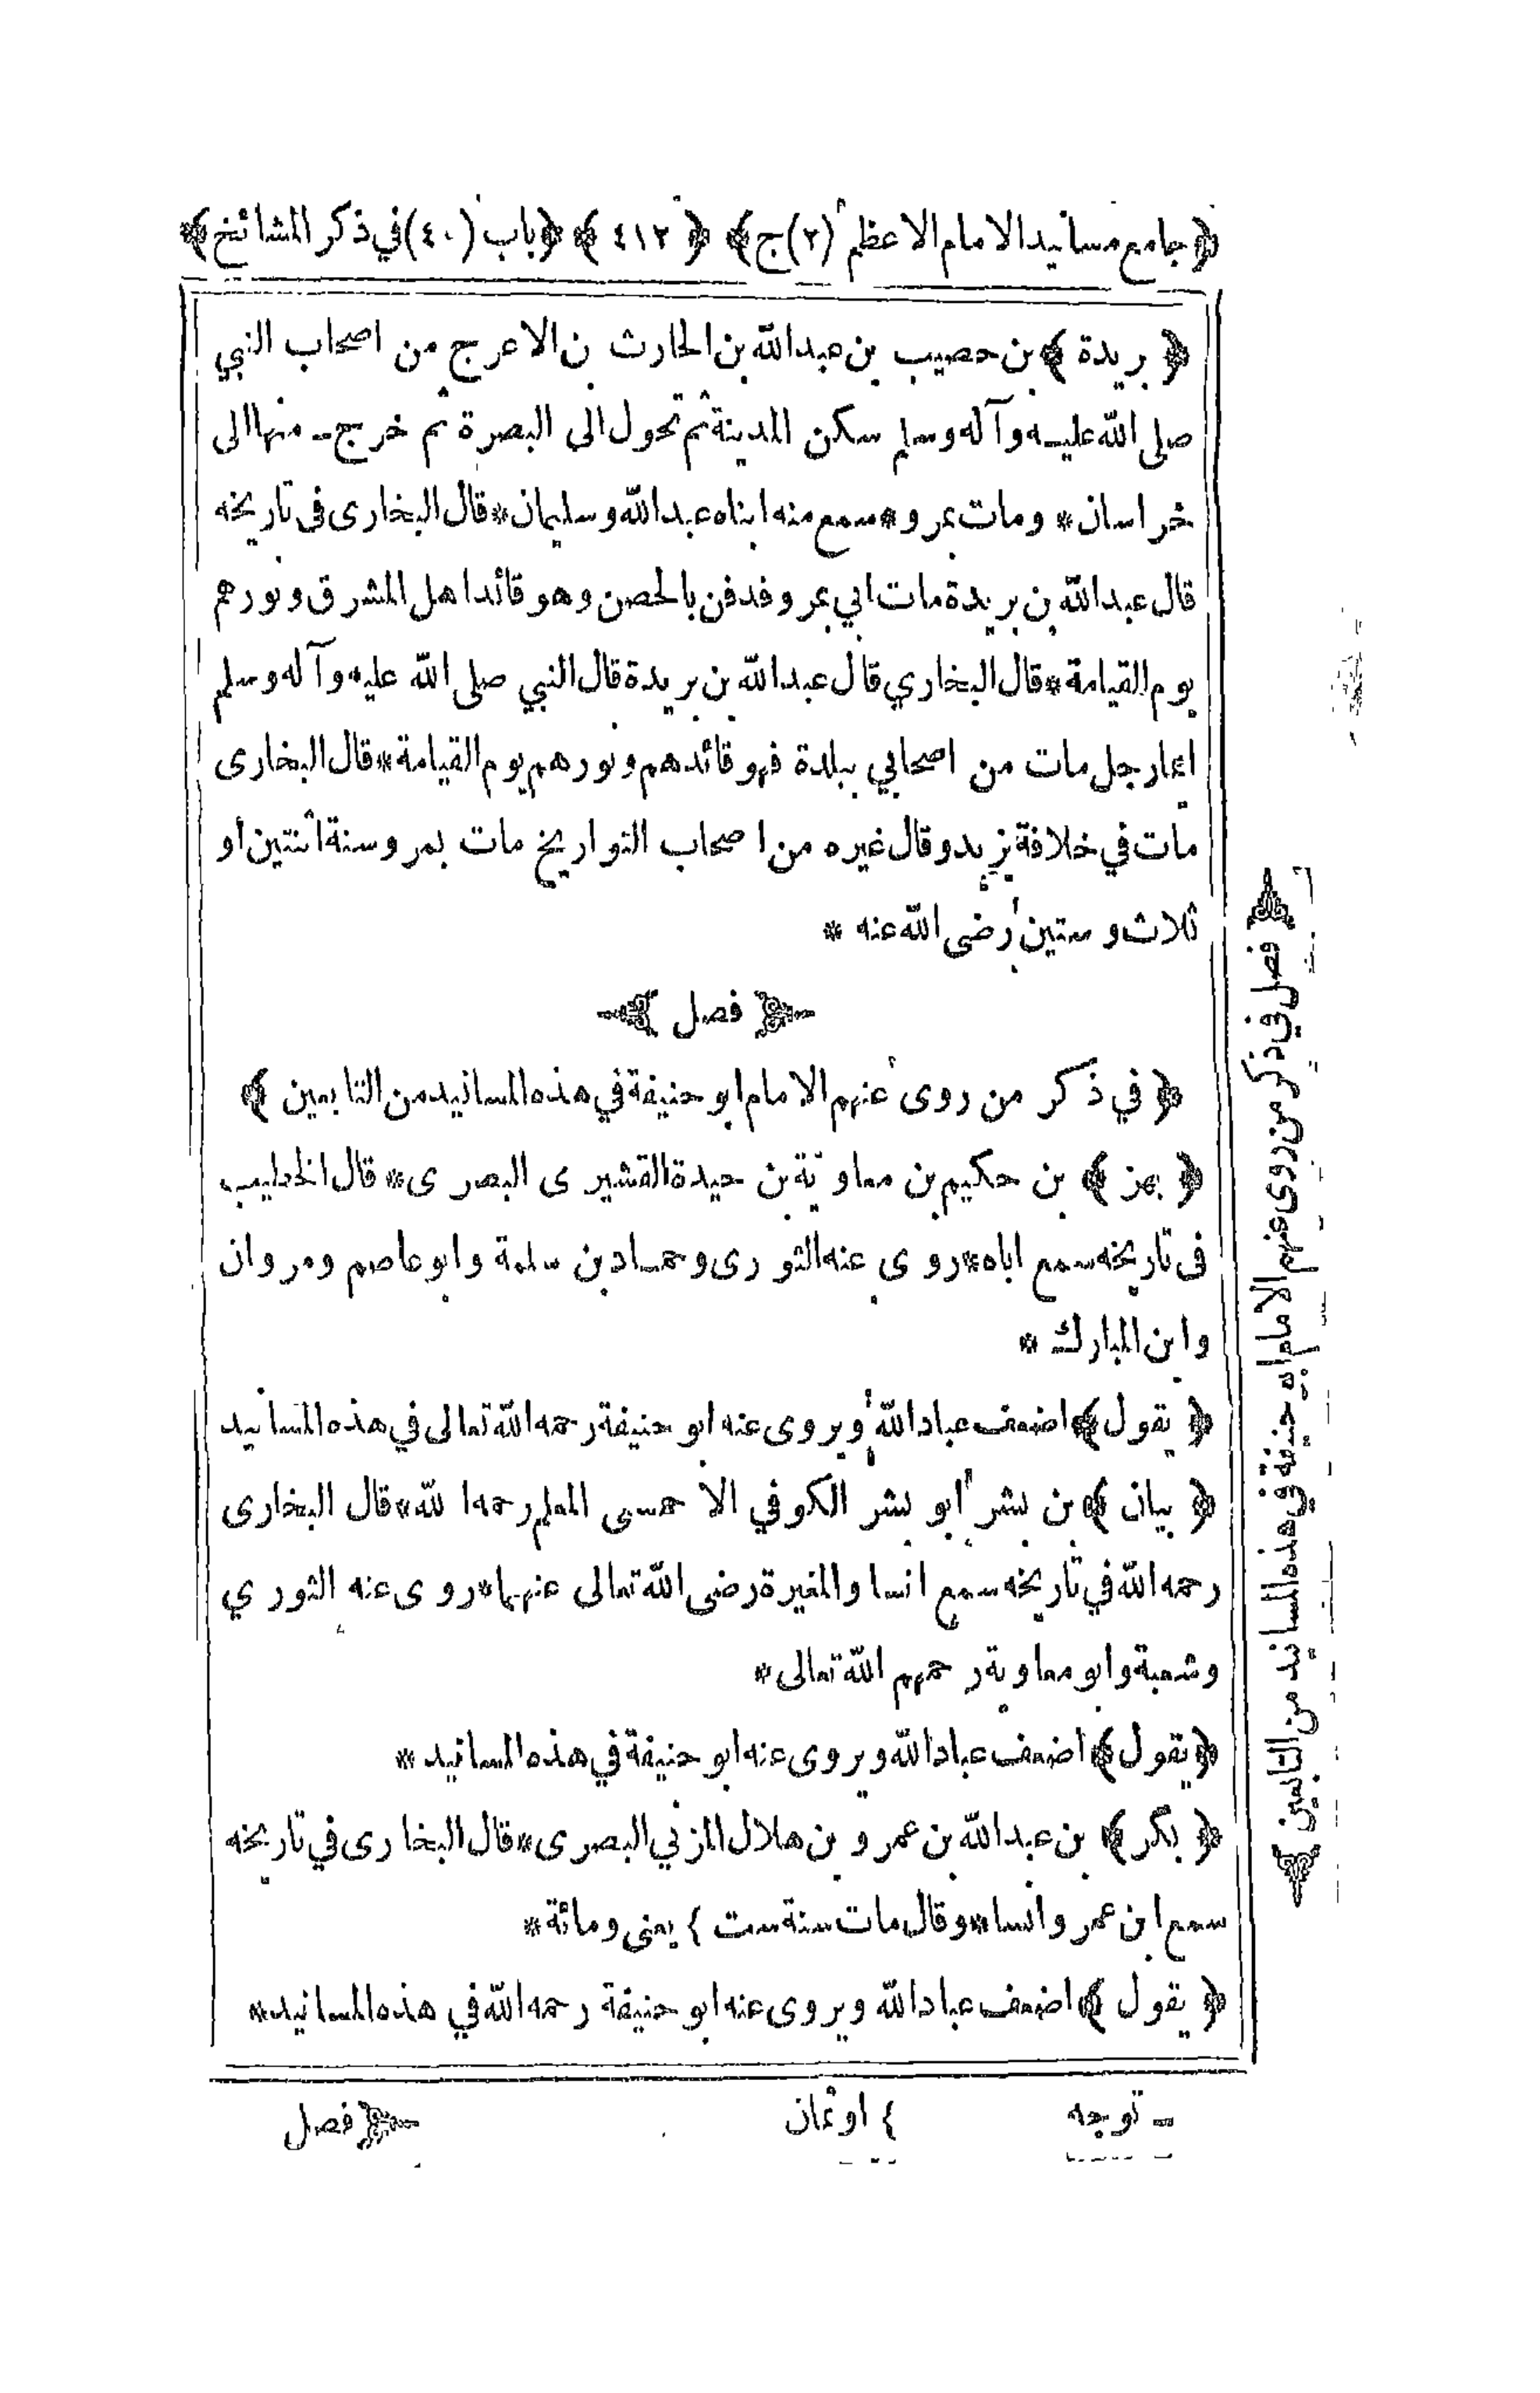 ﴿جامع مسانيد الامام الاعظم (٢)ج﴾ ﴿٤١٢﴾ ﴿باب (٤٠) في ذكر المشائخ﴾
﴿ بريدة ﴾ بن حصيب بن عبدالله بن الحارث بن الاعرج من اصحاب النبي
صلى الله عليه وآله وسلم سكن المدينة ثم تحول الى البصرة ثم خرج ـ منها الى
خراسان * ومات بمرو * سمع منه ابناه عبدالله وسليمان * قال البخارى فى تاريخه
قال عبدالله بن بريدة مات ابي بمرو فدفن بالحصن وهو قائد اهل المشرق ونورهم
يوم القيامة * قال البخاري قال عبدالله بن بريدة قال النبي صلى الله عليه وآله وسلم
ايما رجل مات من اصحابي ببلدة فهو قائدهم ونورهم يوم القيامة * قال البخارى
مات في خلافة يزيد وقال غيره من اصحاب التواريخ مات بمرو سنة اثنتين او
ثلاث وستين رضى الله عنه *
﴿ فصل ﴾
﴿ في ذكر من روى عنهم الامام ابو حنيفة في هذه المسانيد من التابعين ﴾
﴿ بهز ﴾ بن حكيم بن معاوية بن حيدة القشيرى البصرى * قال الخطيب
فى تاريخه سمع اباه * روي عنه الثورى وحماد بن سلمة وابو عاصم ومروان
وابن المبارك *
﴿ يقول ﴾ اضعف عباد الله ويروى عنه ابو حنيفة رحمه الله تعالى في هذه المسانيد
﴿ بيان ﴾ بن بشر أبو بشر الكوفي الاحمسى المعلم رحمه الله * قال البخارى
رحمه الله في تاريخه سمع انسا والمغيرة رضى الله تعالى عنهما * روى عنه الثوري
وشعبة وابو معاوية رحمهم الله تعالى *
﴿ يقول ﴾ اضعف عباد الله ويروى عنه ابو حنيفة في هذه المسانيد *
﴿ بكر ﴾ بن عبدالله بن عمرو بن هلال المزني البصرى * قال البخارى في تاريخه
سمع ابن عمر وانسا * وقال مات سنة ست } يعنى ومائة *
﴿ يقول ﴾ اضعف عباد الله ويروى عنه ابو حنيفة رحمه الله في هذه المسانيد *
ـ توجه } او ثمان ﴿ فصل
﴿ فصل في ذكر من روى عنهم الامام ابو حنيفة في هذه المسانيد من التابعين ﴾